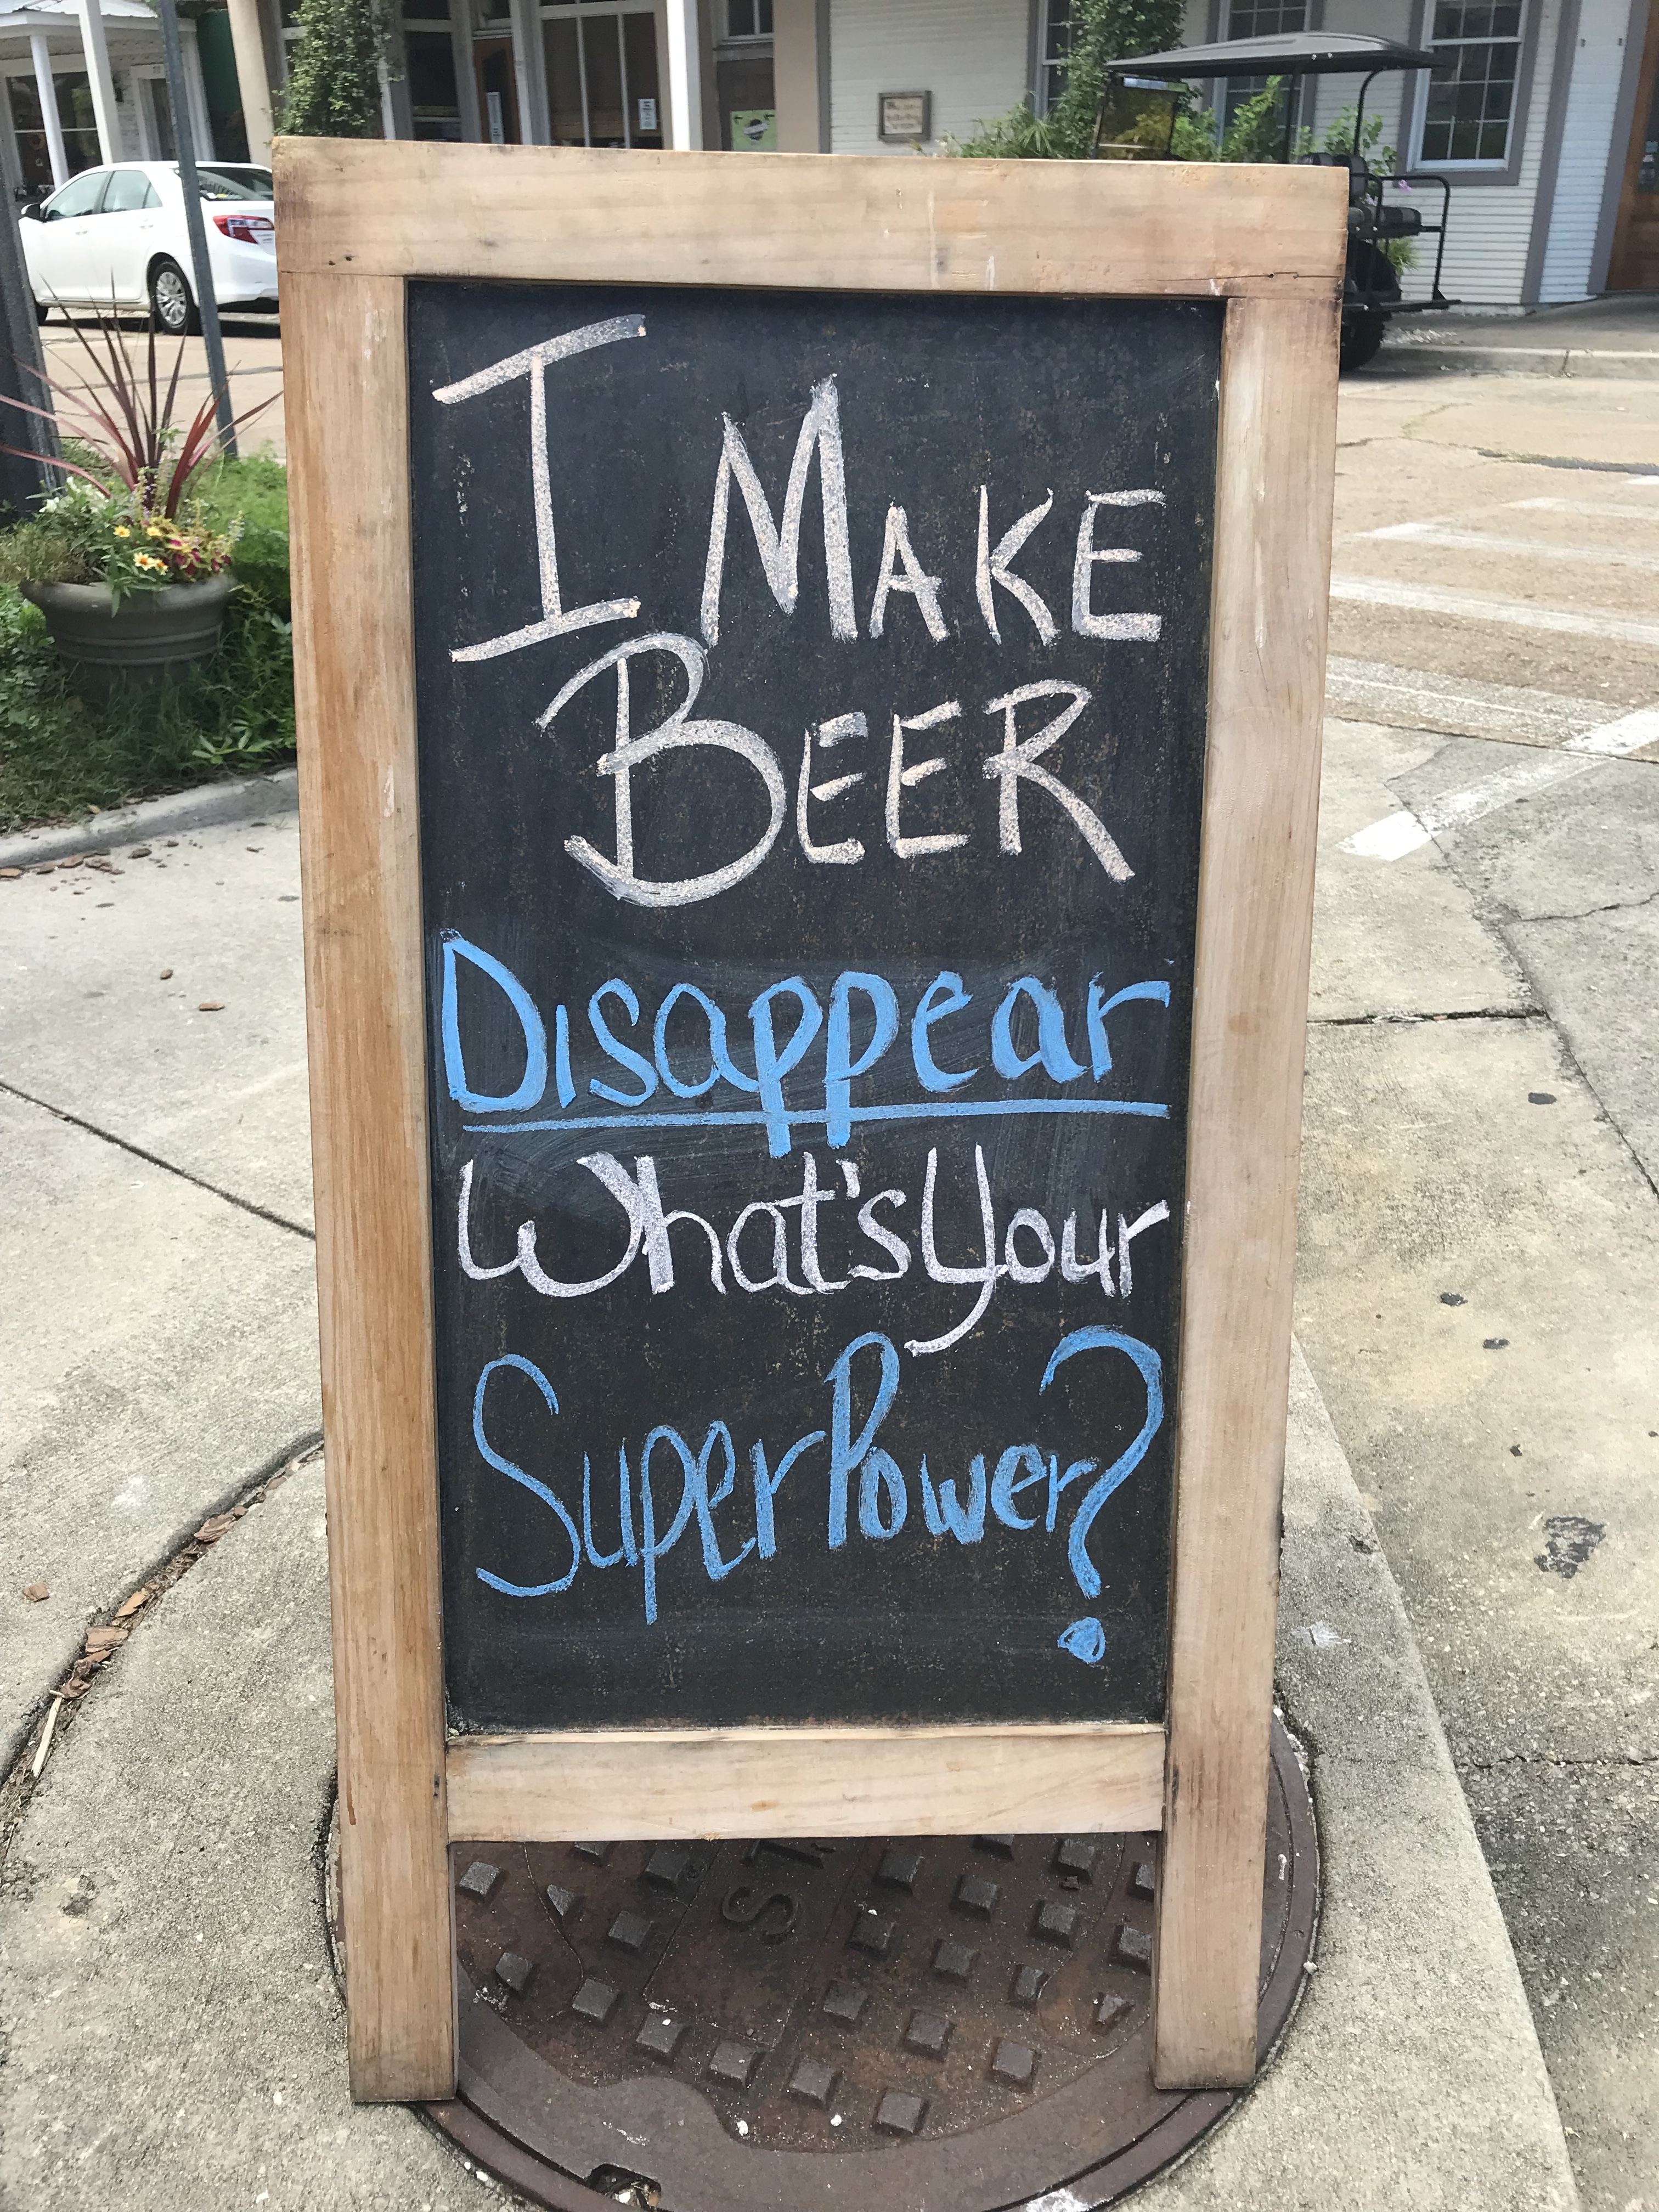 I MAKE
BEER
Disappear
What's Your
SuperPower?